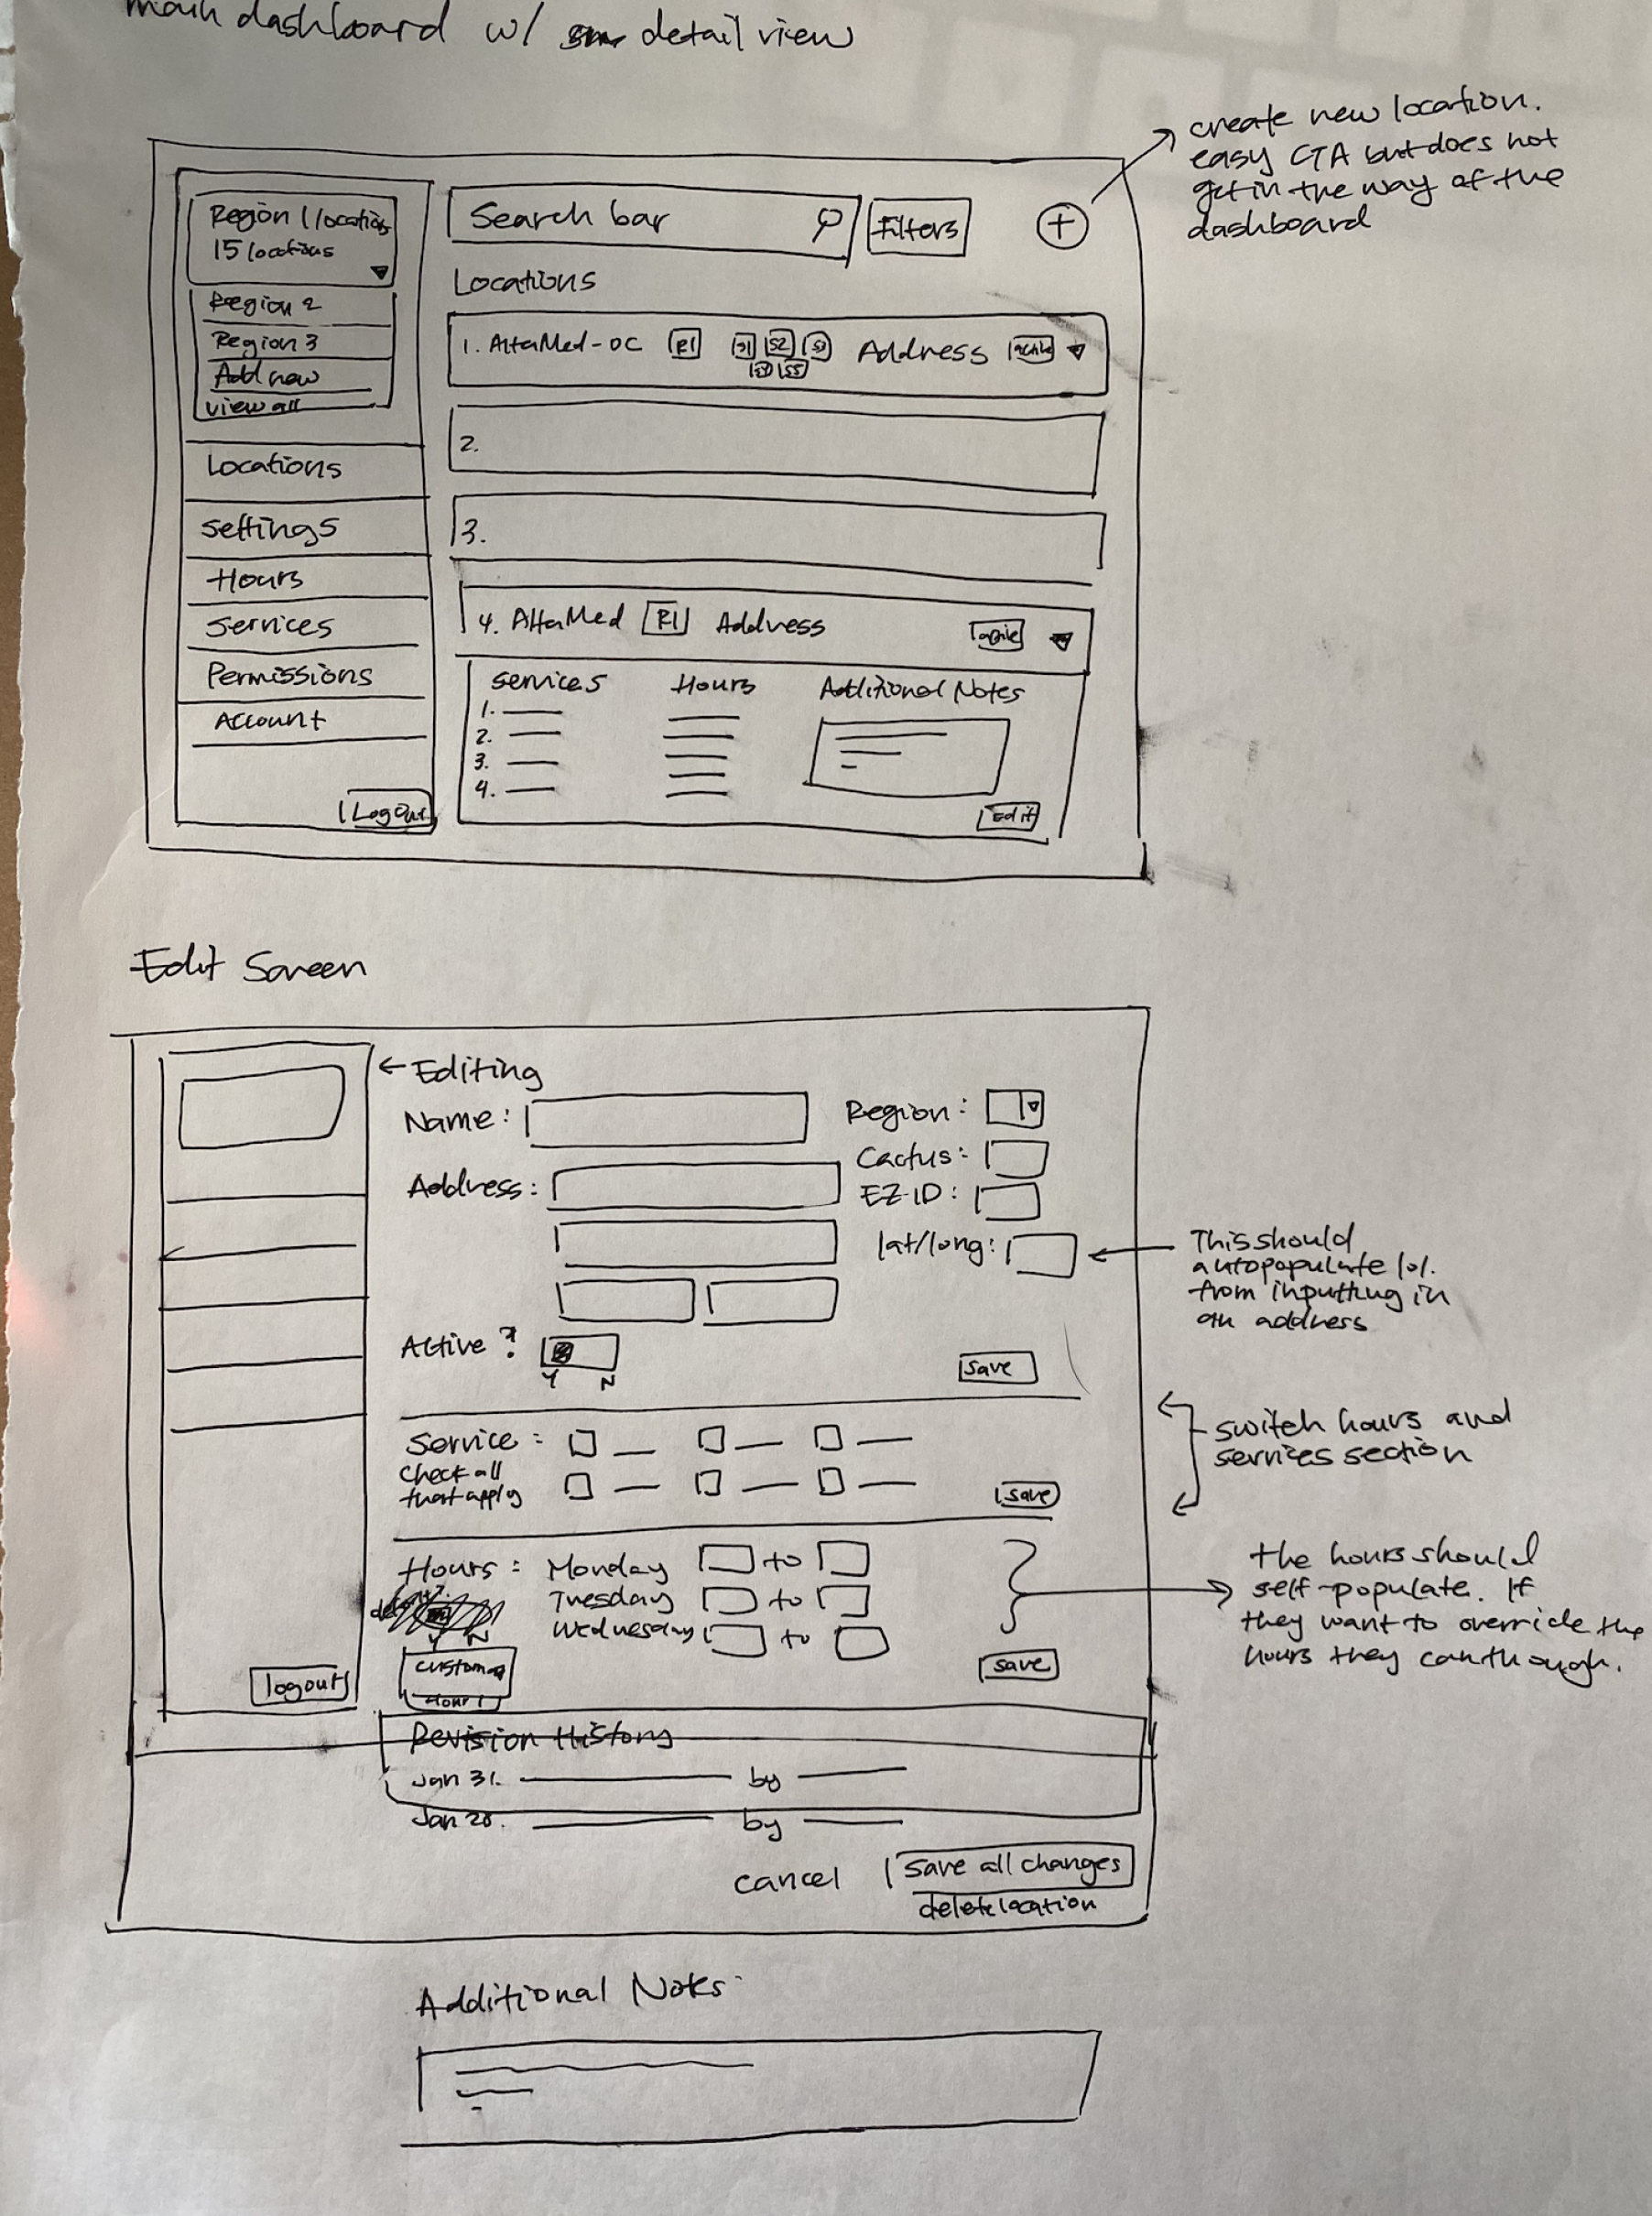 main dashboard w/ detail view
create new location.
easy CTA but does not
get in the way of the
dashboard
Region 1 locations
15 locations
Region 2
Region 3
Add new
view all
Locations
Settings
Hours
Services
Permissions
Account
Logout
Search bar
Filters
+
Locations
1. AltaMed-OC R1 S1 S2 S3 Address active
S4 S5
2.
3.
4. AltaMed R1 Address active
Services Hours Additional Notes
1.
2.
3.
4.
Edit
Edit Screen
← Editing
Name:
Region:
Cactus:
Address:
EZ-ID:
lat/long:
This should
autopopulate lol.
from inputting in
an address
Active?
Y N
save
Service:
Check all
that apply
save
switch hours and
services section
Hours: Monday to
Tuesday to
Wednesday to
Y N
custom
hour
save
the hours should
self-populate. If
they want to override the
hours they can though.
logout
Revision History
Jan 31. by
Jan 20. by
cancel
save all changes
delete location
Additional Notes